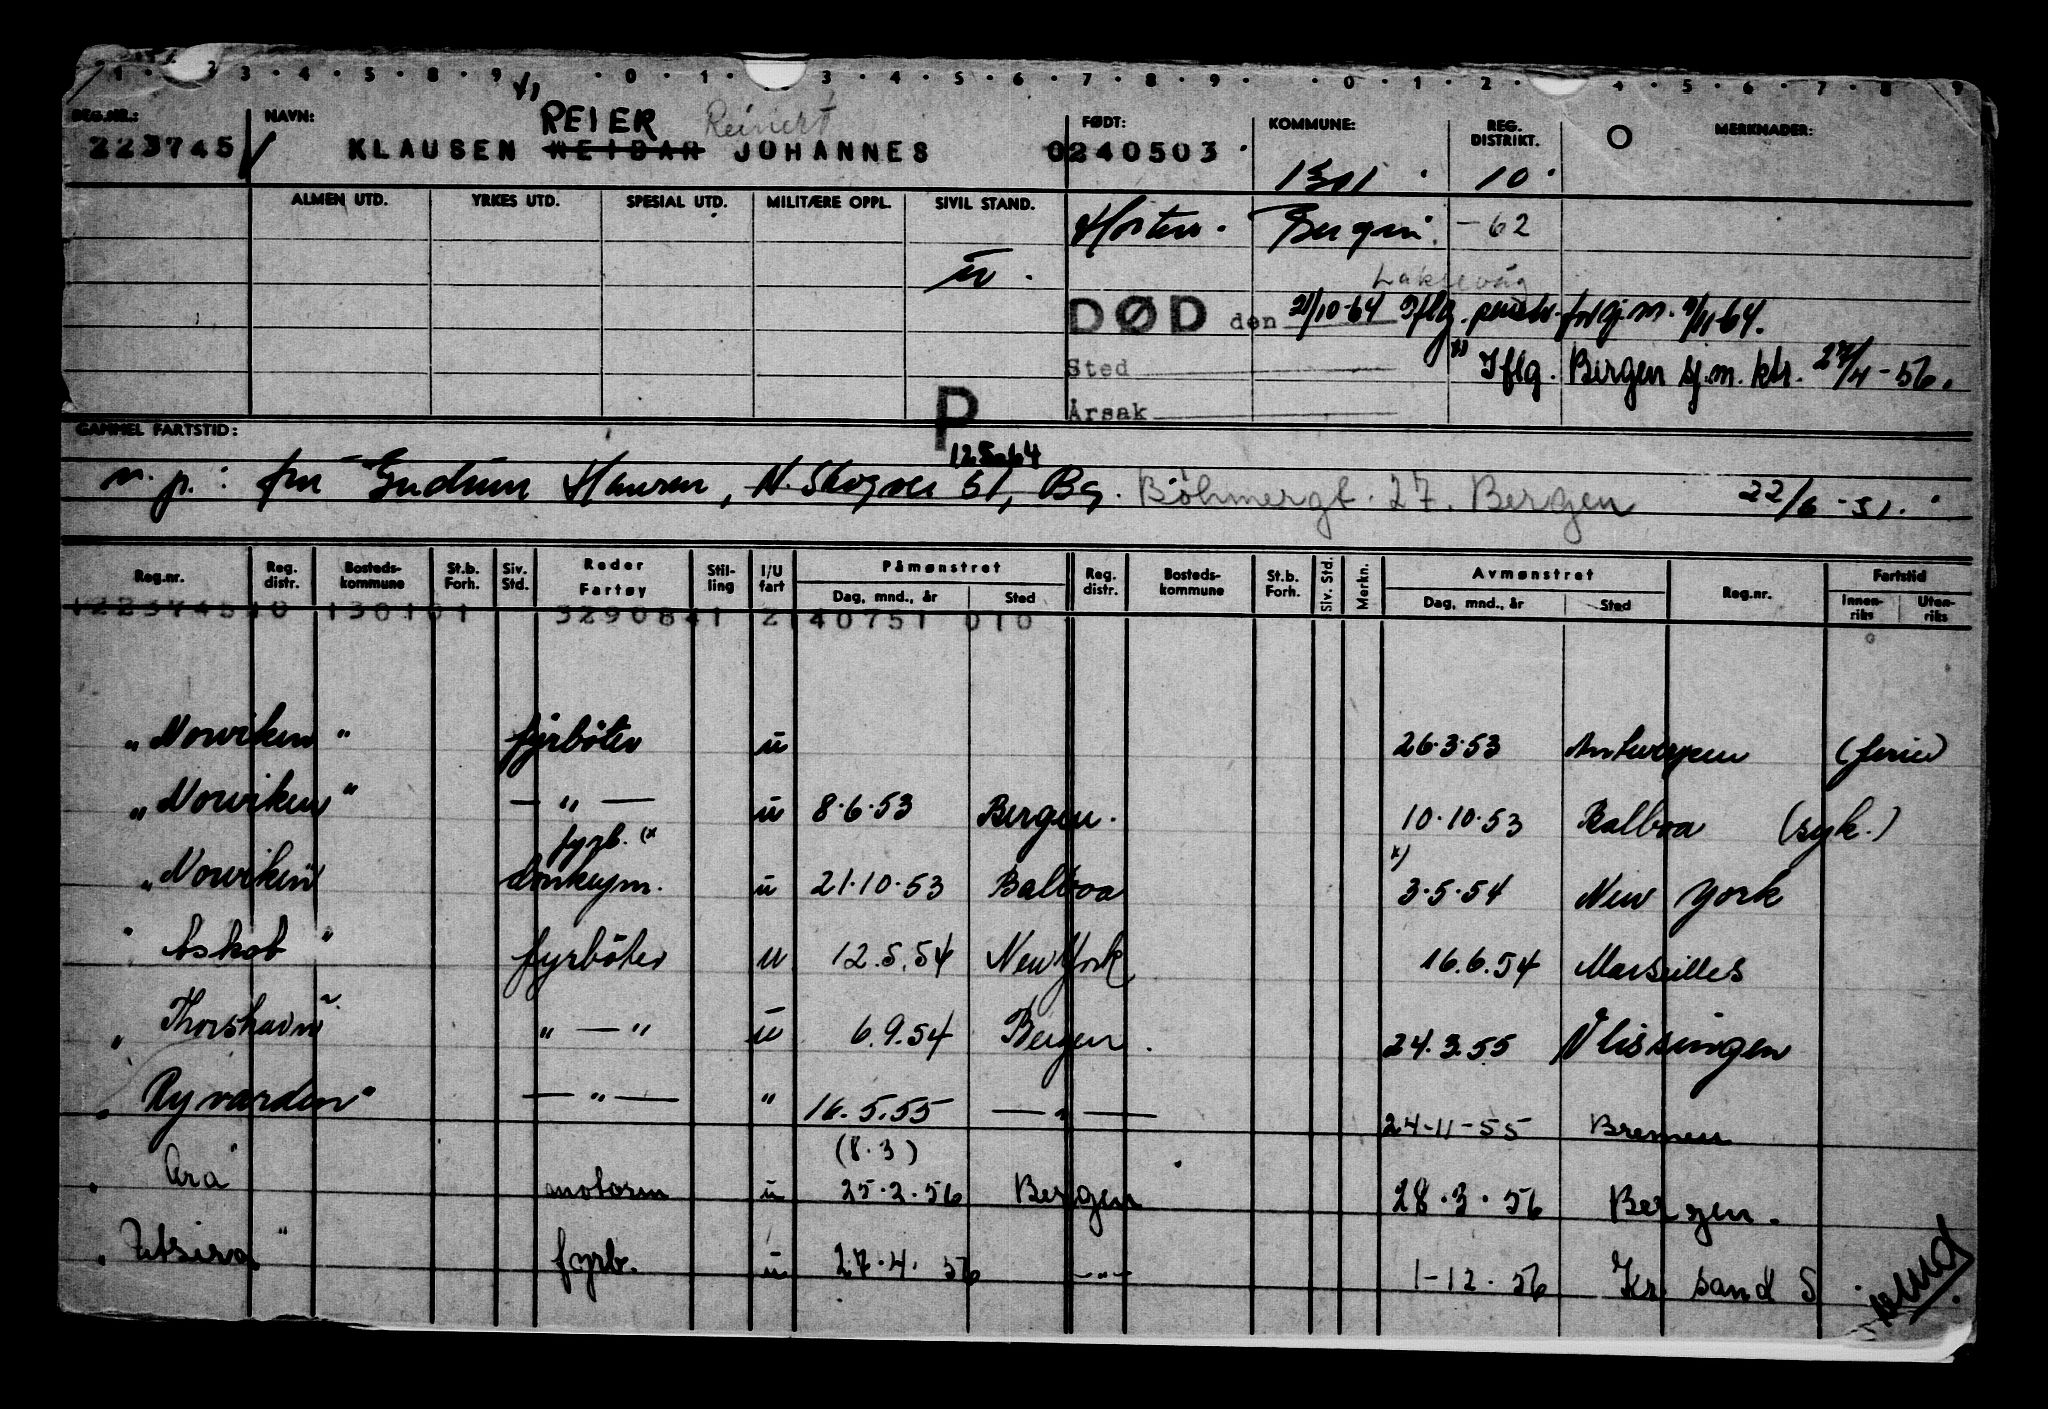 1 · 2 3 · 4 · 5 · 8 · 9 · 0 · 1 · 3 · 4 · 5 · 6 · 7 · 8 · 9 · 0 · 1 · 2 · 4 · 5 · 6 · 7 · 8 9
REG.NR.: NAVN: REIER Reinert FØDT: KOMMUNE: REG. DISTRIKT. MERKNADER:
223745 KLAUSEN REIDAR JOHANNES 0240503 1301 10
ALMEN UTD. YRKES UTD. SPESIAL UTD. MILITÆRE OPPL. SIVIL STAND. Horten. Bergen. -62
u. Laksevåg
DØD den 21/10-64 Iflg. pensv. 9/11-64.
Sted x) Iflg. Bergen sj.m. ktr. 27/4-56.
Årsak
P
GAMMEL FARTSTID:
125064
n.p.: fru Gudrun Hansen, N. Skogvei 61, Bg. Böhmergt. 27. Bergen 22/6-51.
Reg.nr. Reg. distr. Bosteds-kommune St.b. Forh. Siv. Std. Reder Fartøy Stil-ling I/U fart Påmønstret Dag, mnd., år Sted Reg. distr. Bosteds-kommune St.b. Forh. Siv. Std. Merkn. Avmønstret Dag, mnd., år Sted Reg.nr. Fartstid Innen-riks Uten-riks
122374510 130101 3290841 2140751 010
"Norviken" fyrböter u 26.3.53 Antwerpen (ferie)
"Norviken" — " — u 8.6.53 Bergen. 10.10.53 Balboa (syk.)
fyrb. (x
"Norviken" donkeym. u 21.10.53 Balboa x) 3.5.54 New York
"Askot" fyrböter u 12.5.54 New York 16.6.54 Marseilles
"Thorshavn" " — " u 6.9.54 Bergen. 24.3.55 Vlissingen
"Ryvarden" — " — " 16.5.55 — " — 24-11-55 Bremen
(8.3)
"Ara" motorm u 25.2.56 Bergen 28.3.56 Bergen.
"Utsira" fyrb. u 27.4.56 — " — 1-12.56 Kr. sand S.